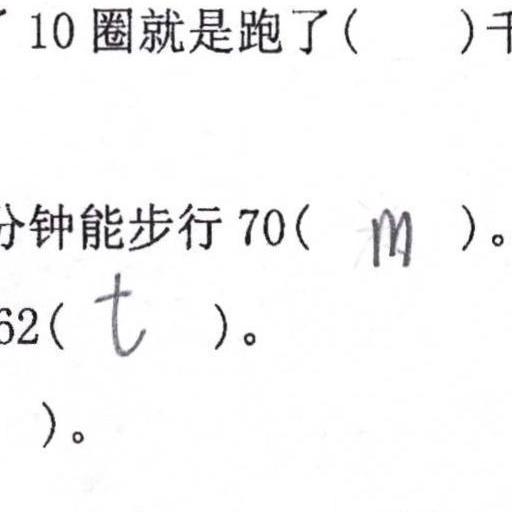 10 圈就是跑了(    )千
分钟能步行 70( m )。
62( t )。
)。